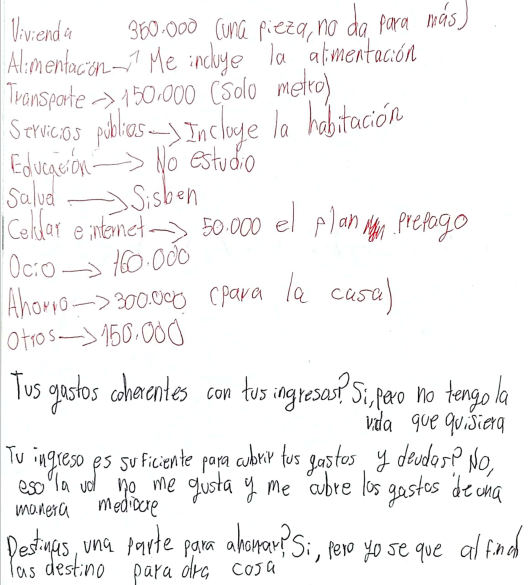 Vivienda 350.000 (una pieza, no da para más)
Alimentación → Me incluye la alimentación
Transporte → 150.000 (Solo metro)
Servicios públias → Incluye la habitación
Educación → No estudio
Salud → Sisben
Celular e internet → 50.000 el plan prepago
Ocio → 160.000
Ahorro → 300.000 (para la casa)
Otros → 150.000
Tus gastos coherentes con tus ingresos? Si, pero no tengo la
vida que quisiera
Tu ingreso es suficiente para cubrir tus gastos y deudas? No,
eso la me gusta y me cubre los gastos de una
manera mediocre
Destinas una parte para ahorrar? Si, pero yo se que al final
las destino para otra cosa